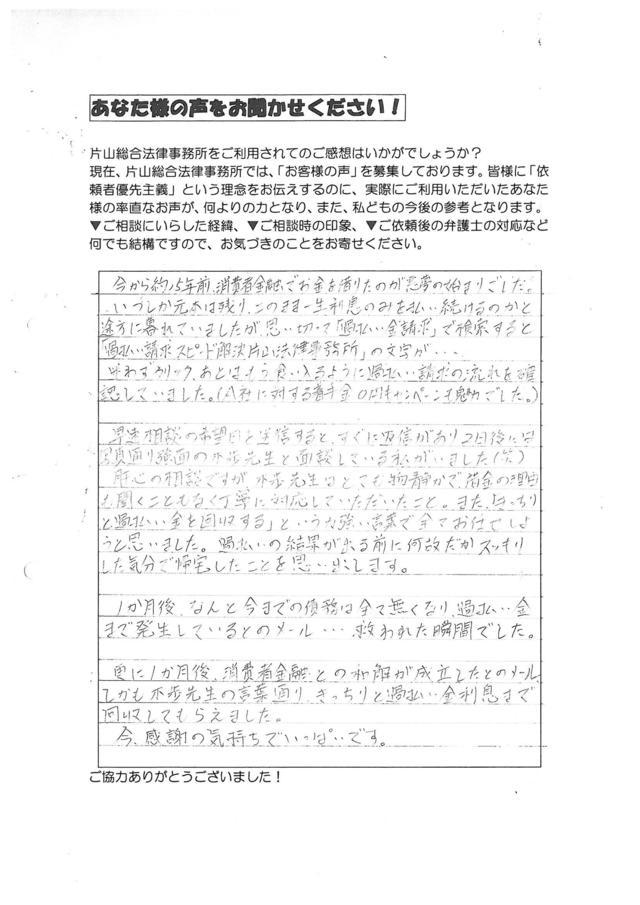 あなた様の声をお聞かせください！
片山総合法律事務所をご利用されてのご感想はいかがでしょうか？
現在、片山総合法律事務所では、「お客様の声」を募集しております。皆様に「依
頼者優先主義」という理念をお伝えするのに、実際にご利用いただいたあなた
様の率直なお声が、何よりの力となり、また、私どもの今後の参考となります。
▼ご相談にいらした経緯、▼ご相談時の印象、▼ご依頼後の弁護士の対応など
何でも結構ですので、お気づきのことをお寄せください。
今から約15年前、消費者金融でお金を借りたのが悪夢の始まりでした。
いつしか元本は残り、このまま一生利息のみを払い続けるのかと
途方に暮れていましたが、思い切って「過払い金請求」で検索すると
「過払い請求スピード解決片山法律事務所」の文字が・・・
思わずクリック、あとはもう食い入るように過払い請求の流れを確
認していました。(A社に対する着手金0円キャンペーンも魅力でした。)
早速相談の希望日を送信すると、すぐに返信があり2日後には
写真通り強面の先生と面談している私がいました(笑)
肝心の相談ですが先生はとても物静かで、借金の理由
も聞くこともなく丁寧に対応していただいたこと。また、「きっちり
と過払い金を回収する」という力強い言葉で全てお任せしよ
うと思いました。過払いの結果が出る前に何故だかスッキリ
した気分で帰宅したことを思い出します。
1か月後、なんと今までの債務は全て無くなり、過払い金
まで発生しているとのメール・・・救われた瞬間でした。
更に1か月後、消費者金融との和解が成立したとのメール、
しかも先生の言葉通り、きっちりと過払い金利息まで
回収してもらえました。
今、感謝の気持ちでいっぱいです。
ご協力ありがとうございました！